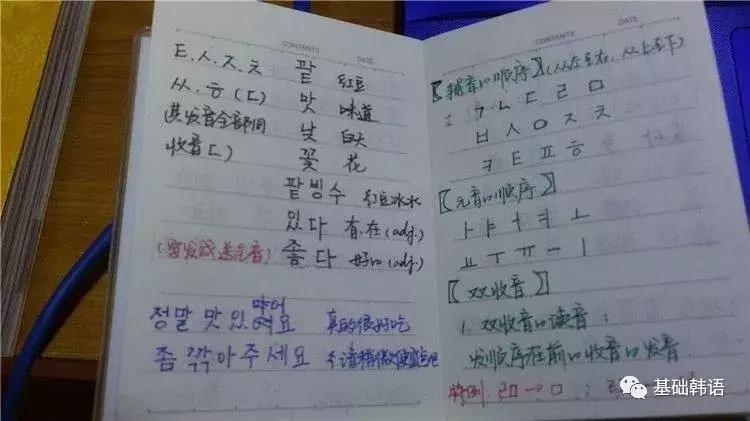 CONTENTS DATE
ㅌ.ㅅ.ㅈ.ㅊ 팥 红豆
ㅆ.ㅎ(ㄷ) 맛 味道
其发音全部同 낮 白天
收音ㄷ) 꽃 花
팥빙수 红豆冰水
있다 有.在(adj.)
좋다 好的(adj.)
마이어
정말 맛있어요 真的很好吃
좀 깍아주세요 请稍微便宜点吧
CONTENTS DATE
【辅音的顺序】(从左至右,从上至下)
ㄱ ㄴ ㄷ ㄹ ㅁ
ㅂ ㅅ ㅇ ㅈ ㅊ
ㅋ ㅌ ㅍ ㅎ
【元音的顺序】
ㅏ ㅑ ㅓ ㅕ ㅗ
ㅛ ㅜ ㅠ ㅡ ㅣ
【双收音】
1. 双收音的读音:
发顺序在前的收音的发音
特例: ㄻ→ㅁ ;
基础韩语